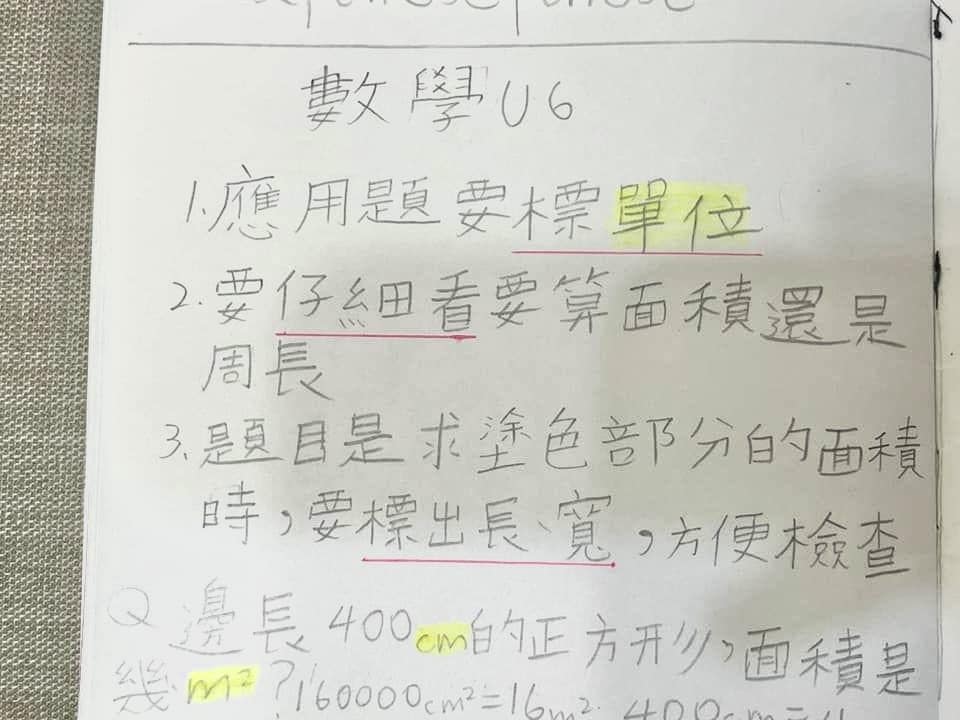 數學U6
1.應用題要標單位
2.要仔細看要算面積還是
周長
3.題目是求塗色部分的面積
時,要標出長、寬,方便檢查
Q 邊長400cm的正方形,面積是
幾m²?160000cm²=16m². 400cm=4